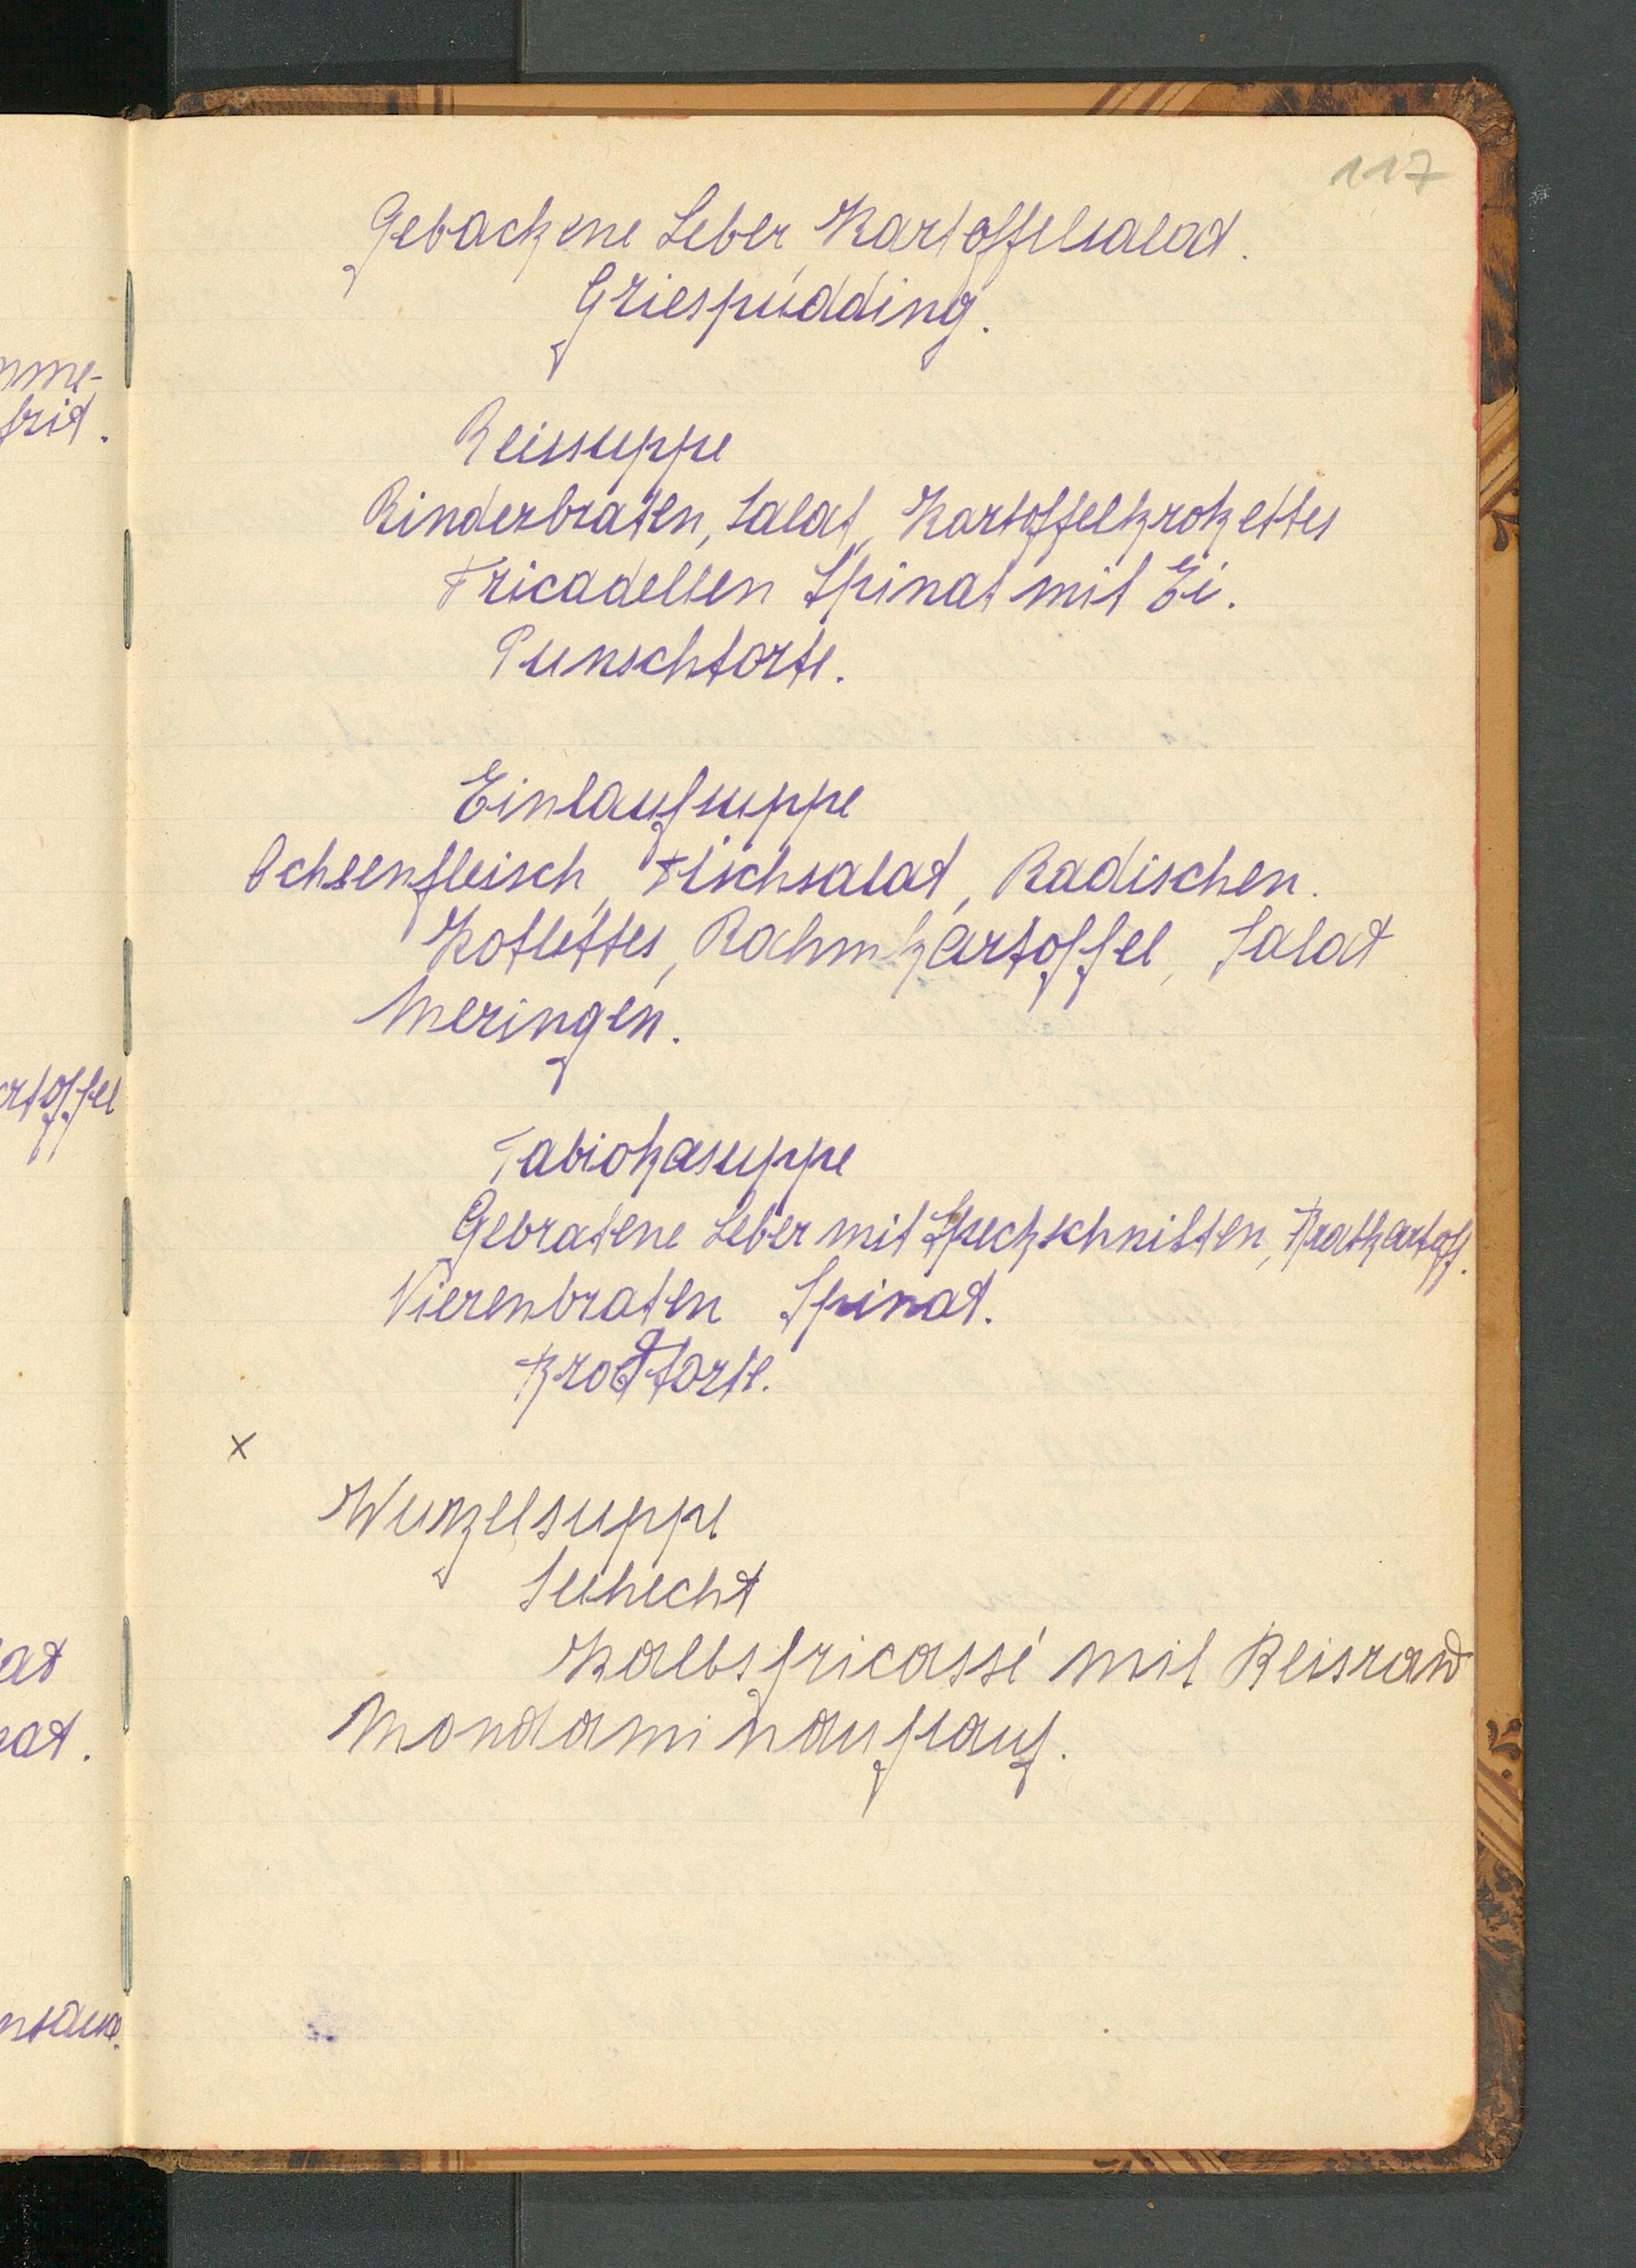 117
Gebackene Leber, Kartoffelsalad.
Griespudding.
Reissuppe
Rinderbraten, Salat, Kartoffelkrokettes
Fricadellen Spinat mit Ei.
Punschtorte.
Einlaufsuppe
Ochsenfleisch, Fischsalat, Radischen.
Kotlettes, Rahmkartoffel, Salat
Meringen.
Tabiokasuppe
Gebratene Leber mit Speckschnitten, Bratkartoff.
Nierenbraten Spinat.
Brodtorte.
x
Wurzelsuppe
Seehecht
Kalbsfricassé mit Reisrand
Mondaminauflauf.
mme-
frit.
artoffel
at
at.